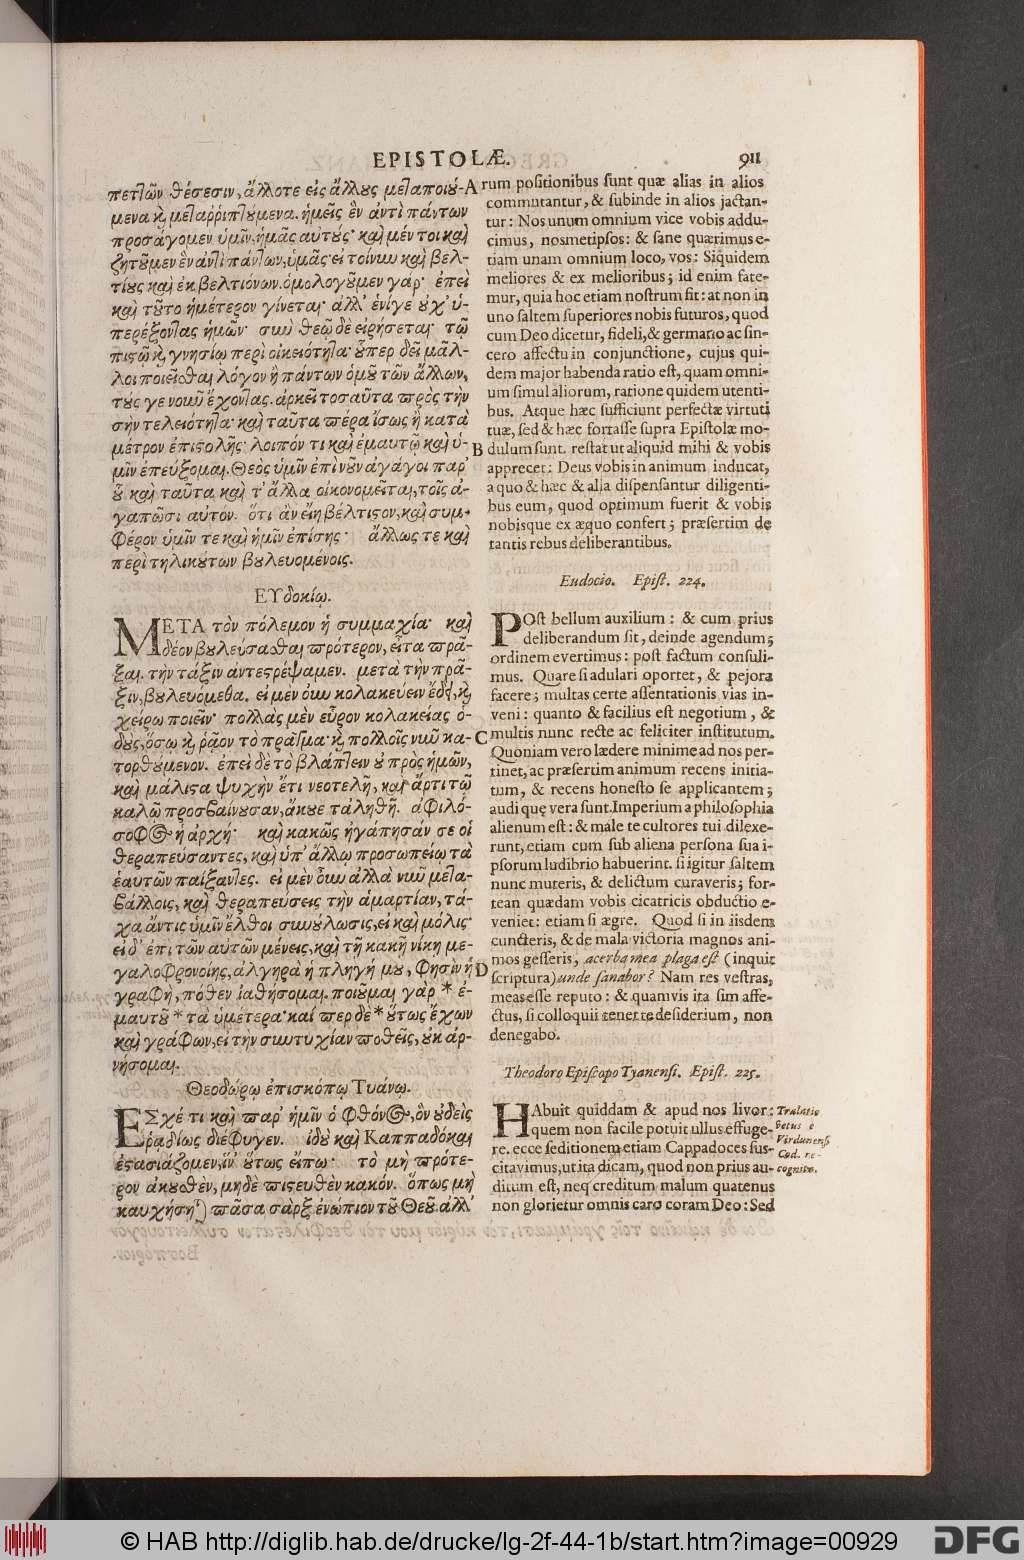 EPISTOLÆ.
911
πετῶν θέσεσιν, ἄλλοτε εἰς ἄλλους μεταποιού-
μενα κὶ μεταρριπτούμενα. ἡμεῖς ἓν ἀντὶ πάντων
προσάγομεν ὑμῖν, ἡμᾶς αὐτούς· καὶ μέν τοι καὶ
ζητοῦμεν ἓν ἀντὶ πάντων, ὑμᾶς· εἰ τοίνυν καὶ βελ-
τίους καὶ ἐκ βελτιόνων. ὁμολογοῦμεν γάρ· ἐπεὶ
καὶ τοῦτο ἡμέτερον γίνεται· ἀλλ' ἑνί γε οὐχ' ὑ-
περέξοντας ἡμῶν· σὺν θεῷ δὲ εἰρήσεται· τῷ
πιστῷ κὶ γνησίῳ περὶ οἰκειότητα· οὗπερ δεῖ μᾶλ-
λοι ποιεῖσθαι λόγον ἢ πάντων ὁμοῦ τῶν ἄλλων,
τούς γε νοῦν ἔχοντας. ἀρκεῖ τοσαῦτα πρὸς τὴν
σὴν τελειότητα· καὶ ταῦτα πέρα ἴσως ἢ κατὰ
μέτρον ἐπιστολῆς· λοιπόν τι καὶ ἐμαυτῷ καὶ ὑ-
μῖν ἐπεύξομαι. Θεὸς ὑμῖν ἐπὶ νοῦν ἀγάγοι παρ'
οὗ καὶ ταῦτα καὶ τ' ἄλλα οἰκονομεῖται, τοῖς ἀ-
γαπῶσι αὐτόν. ὅτι ἂν εἴη βέλτιστον, καὶ συμ-
φέρον ὑμῖν τε καὶ ἡμῖν ἐπίσης· ἄλλως τε καὶ
περὶ τηλικούτων βουλευομένοις.
Εὐδοκίῳ.
ΜΕΤΑ τὸν πόλεμον ἡ συμμαχία· καὶ
δέον βουλεύσασθαι πρότερον, εἶτα πρᾶ-
ξαι. τὴν τάξιν ἀντεστρέψαμεν. μετὰ τὴν πρᾶ-
ξιν, βουλευόμεθα. εἰ μὲν οὖν κολακεύειν ἔδει, κὶ
χείρω ποιεῖν· πολλὰς μὲν εὗρον κολακείας ὁ-
δοὺς, ὅσῳ κὶ ῥᾷον τὸ πρᾶγμα· κὶ πολλοῖς νῦν κα-
τορθούμενον. ἐπεὶ δὲ τὸ βλάπτειν οὐ πρὸς ἡμῶν,
καὶ μάλιστα ψυχὴν ἔτι νεοτελῆ, καὶ ἄρτι τῷ
καλῷ προσβαίνουσαν, ἄκουε τἀληθῆ. ἀφιλό-
σοφος ἡ ἀρχή· καὶ κακῶς ἠγάπησάν σε οἱ
θεραπεύσαντες, καὶ ὑπ' ἄλλῳ προσωπείῳ τὰ
ἑαυτῶν παίξαντες. εἰ μὲν οὖν ἀλλὰ νῦν μετα-
βάλλοις, καὶ θεραπεύσεις τὴν ἁμαρτίαν, τά-
χα ἄν τις ὑμῖν ἔλθοι συνούλωσις, εἰ καὶ μόλις·
εἰ δ' ἐπὶ τῶν αὐτῶν μένεις, καὶ τῇ κακῇ νίκῃ με-
γαλοφρονοίης, ἀλγηρὰ ἡ πληγή μου, φησὶν ἡ
γραφὴ, πόθεν ἰαθήσομαι. ποιοῦμαι γὰρ * ἐ-
μαυτοῦ * τὰ ὑμέτερα· καί περ δὲ * οὕτως ἔχων
καὶ γράφων, εἰ τὴν συντυχίαν ποθεῖς, οὐκ ἀρ-
νήσομαι.
Θεοδώρῳ ἐπισκόπῳ Τυάνω.
ΕΣχέ τι καὶ παρ' ἡμῖν ὁ φθόνος, ὃν οὐδεὶς
ῥᾳδίως διέφυγεν. ἰδοὺ καὶ Καππαδόκαι
ἐστασιάζομεν, ἵν' οὕτως εἴπω· τὸ μὴ πρότε-
ρον ἀκουσθὲν, μηδὲ πιστευθὲν κακόν. ὅπως μὴ
καυχήσηται πᾶσα σὰρξ ἐνώπιον τοῦ Θεοῦ. ἀλλ'
A rum positionibus sunt quæ alias in alios
commutantur, & subinde in alios jactan-
tur: Nos unum omnium vice vobis addu-
cimus, nosmetipsos: & sane quærimus e-
tiam unam omnium loco, vos: Siquidem
meliores & ex melioribus; id enim fate-
mur, quia hoc etiam nostrum fit: at non in
uno saltem superiores nobis futuros, quod
cum Deo dicetur, fideli, & germano ac sin-
cero affectu in conjunctione, cujus qui-
dem major habenda ratio est, quam omni-
um simul aliorum, ratione quidem utenti-
bus. Atque hæc sufficiunt perfectæ virtuti
tuæ, sed & hæc fortasse supra Epistolæ mo-
B dulum sunt. restat ut aliquid mihi & vobis
apprecer: Deus vobis in animum inducat,
a quo & hæc & alia dispensantur diligenti-
bus eum, quod optimum fuerit & vobis
nobisque ex æquo confert; præsertim de
tantis rebus deliberantibus.
Eudocio. Epist. 224.
POst bellum auxilium: & cum prius
deliberandum sit, deinde agendum;
ordinem evertimus: post factum consuli-
mus. Quare si adulari oportet, & pejora
facere; multas certe assentationis vias in-
veni: quanto & facilius est negotium, &
C multis nunc recte ac feliciter institutum.
Quoniam vero lædere minime ad nos per-
tinet, ac præsertim animum recens initia-
tum, & recens honesto se applicantem;
audi quę vera sunt. Imperium a philosophia
alienum est: & male te cultores tui dilexe-
runt, etiam cum sub aliena persona sua i-
psorum ludibrio habuerint. si igitur saltem
nunc muteris, & delictum curaveris; for-
tean quædam vobis cicatricis obductio e-
veniet: etiam si ægre. Quod si in iisdem
cuncteris, & de mala victoria magnos ani-
D mos gesseris, acerba mea plaga est (inquit
scriptura) unde sanabor? Nam res vestras,
meas esse reputo: & quamvis ita sim affe-
ctus, si colloquii tenet te desiderium, non
denegabo.
Theodoro Episcopo Tyanensi. Epist. 225.
HAbuit quiddam & apud nos livor:
quem non facile potuit ullus effuge-
re. ecce seditionem etiam Cappadoces sus-
citavimus, ut ita dicam, quod non prius au-
ditum est, neq; creditum malum quatenus
non glorietur omnis caro coram Deo: Sed
Tralatio
vetus è
Virdunensi
Cod. re-
cognita.
© HAB http://diglib.hab.de/drucke/lg-2f-44-1b/start.htm?image=00929
DFG